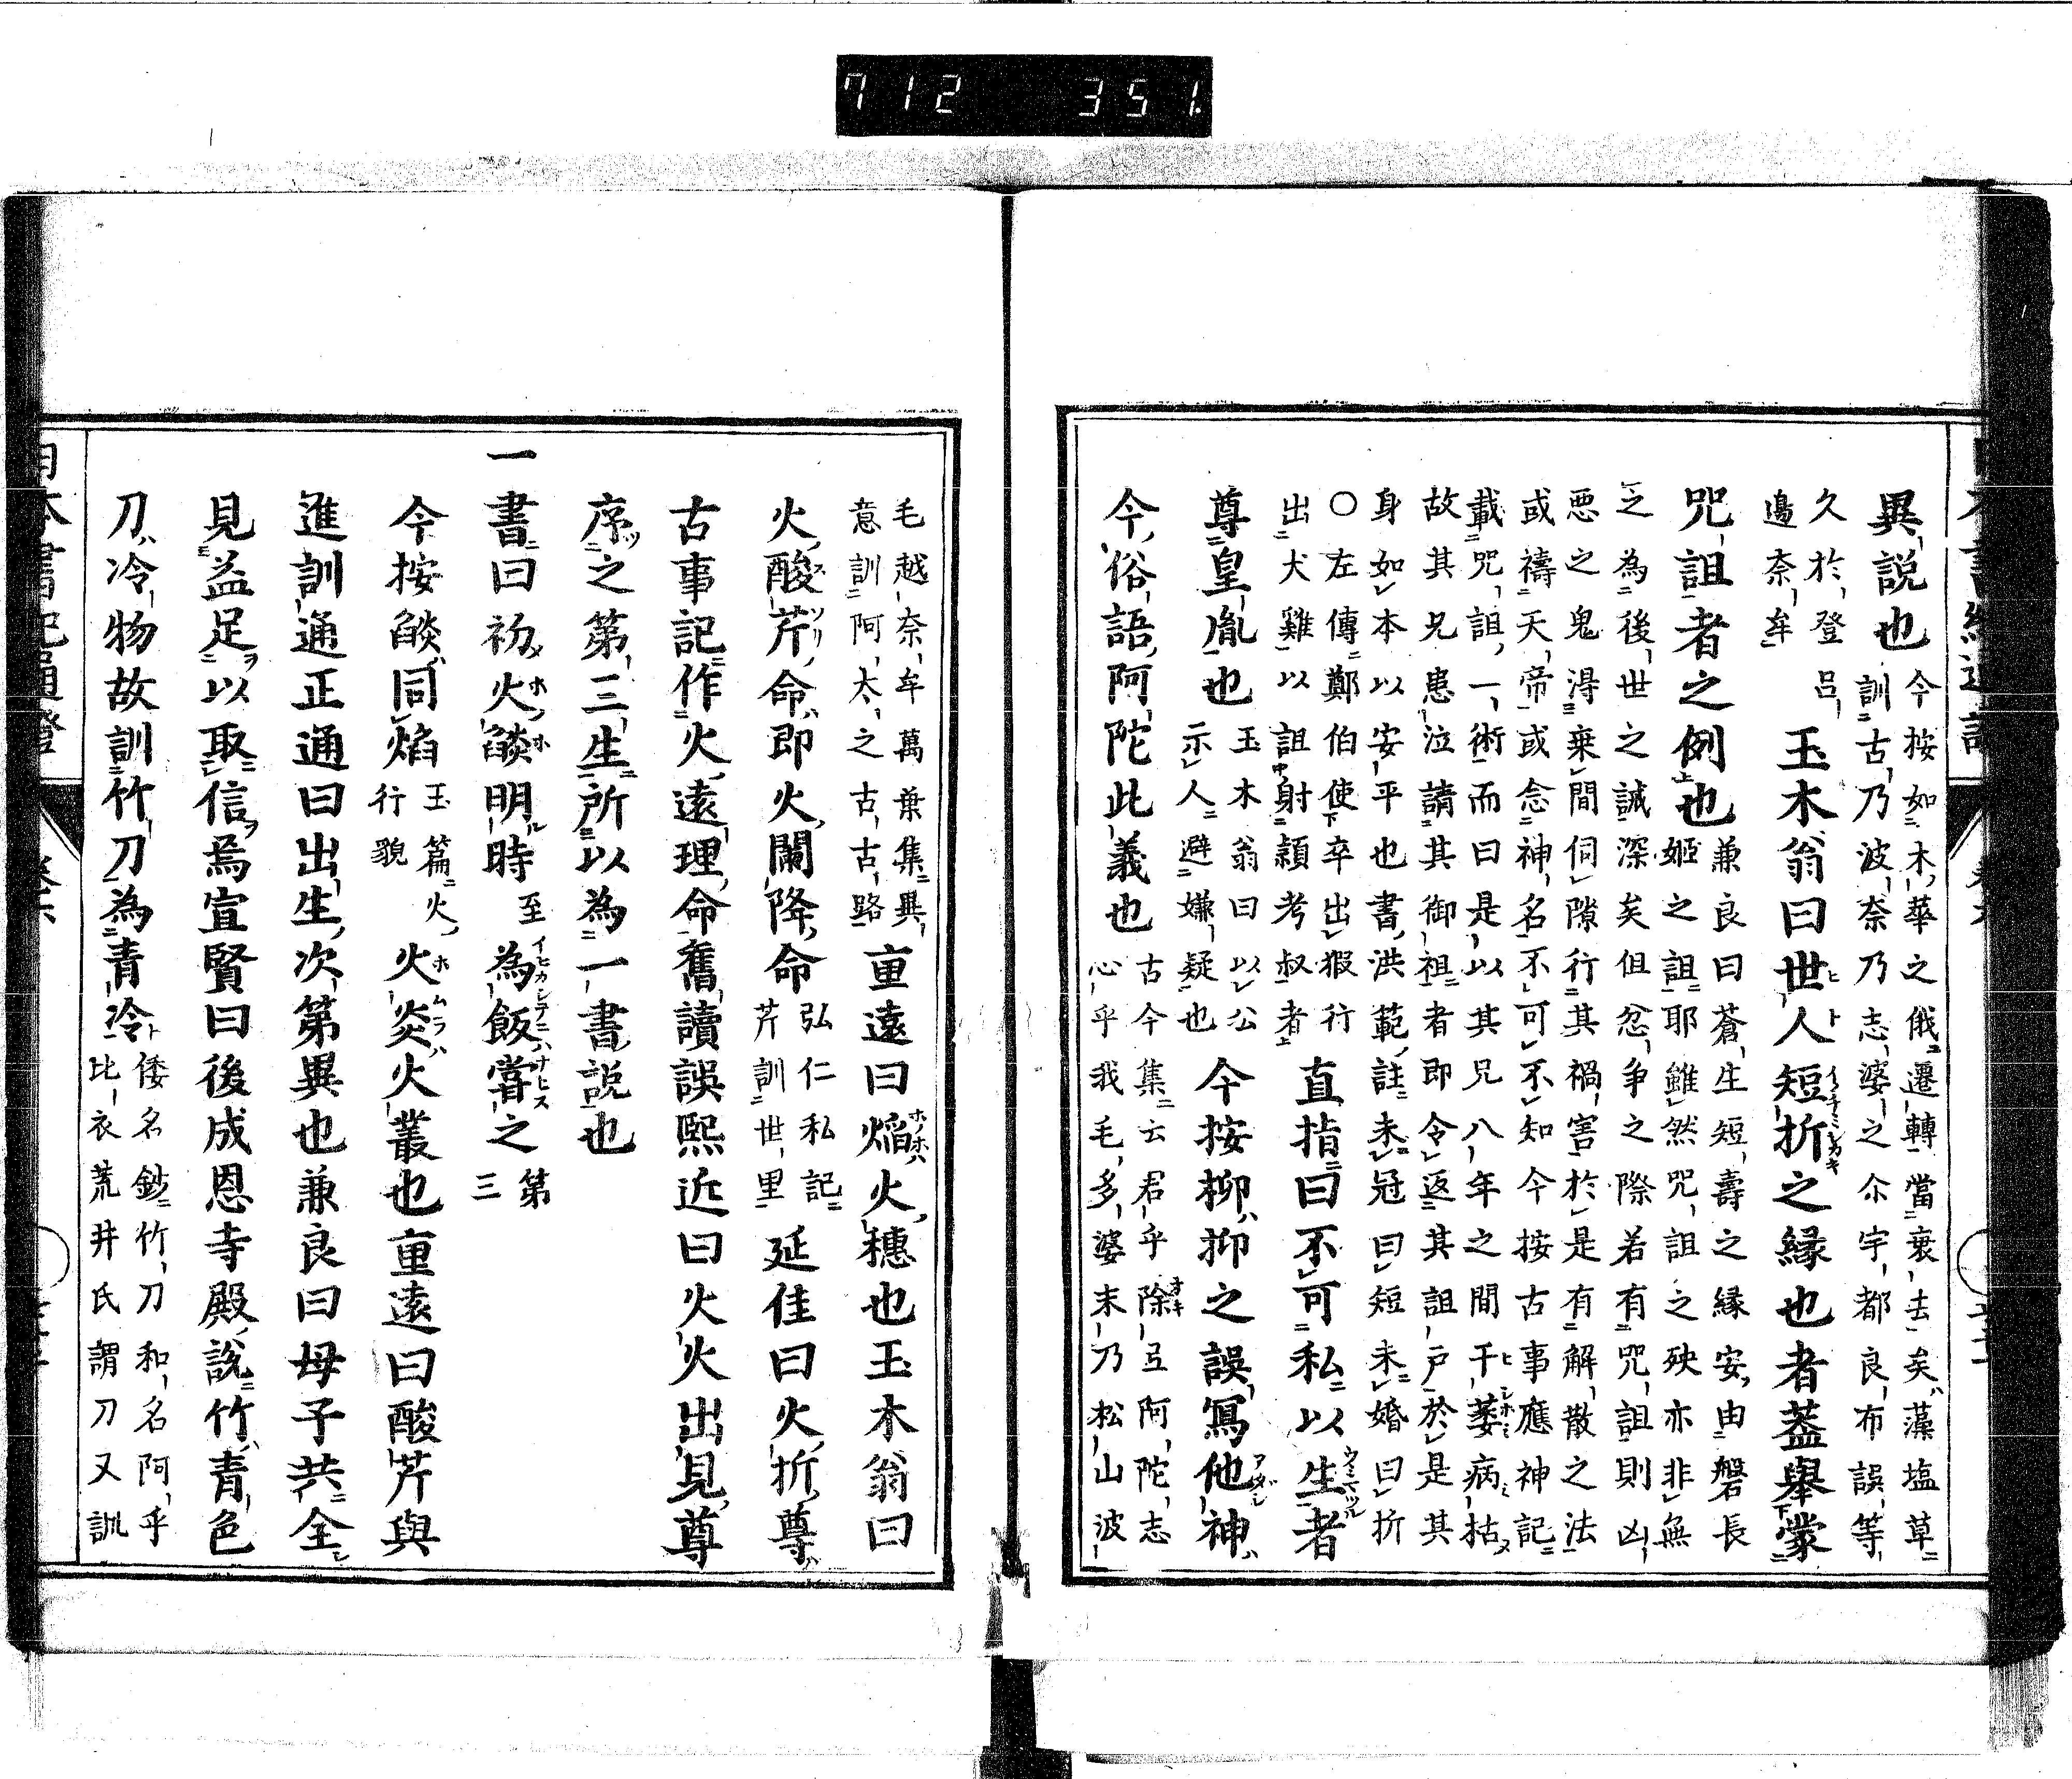 712 351
異說也 今按如木華之俄遷轉當衰去矣藻塩草
訓古乃波奈乃志婆之尒宇都良布誤等
久於登呂
邊奈牟 玉木翁曰世人短折之縁也者蓋舉蒙
咒詛者之例也 兼良曰蒼生短壽之縁安由磐長
姬之詛耶雖然咒詛之殃亦非無
之為後世之誡深矣但忿爭之際若有咒詛則凶
悪之鬼淂乗間伺隙行其禍害於是有解散之法
或禱天帝或念神名不可不知今按古事應神記
載咒詛一術而曰是以其兄八年之間干萎病枯
故其兄患泣請其御祖者即令返其詛戸於是其
身如本以安平也書洪範註未冠曰短未婚曰折
○左傳鄭伯使卒出猳行
出犬雞以詛射頴考叔者 直指曰不可私以生者
尊皇胤也 玉木翁曰以公
示人避嫌疑也 今按柳抑之誤寫他神
今俗語阿陀此義也 古今集云君乎除弖阿陀志
心乎我毛多婆末乃松山波
毛越奈牟萬葉集異
意訓阿太之古古路 重遠曰焔火穗也玉木翁曰
火酸芹命即火闌降命 弘仁私記
芹訓世里 延佳曰火折尊
古事記作火遠理命舊讀誤熙近曰火火出見尊
序之第三生所以為一書說也
一書曰初火燄明時 至 為飯甞之 第
三
今按燄同焔 玉篇火
行貌 火炎火叢也重遠曰酸芹與
進訓通正通曰出生次第異也兼良曰母子共全
見益足以取信焉宣賢曰後成恩寺殿說竹青色
刀冷物故訓竹刀為青冷 倭名鈔竹刀和名阿乎
比衣荒井氏謂刀又訓
日本書紀通證